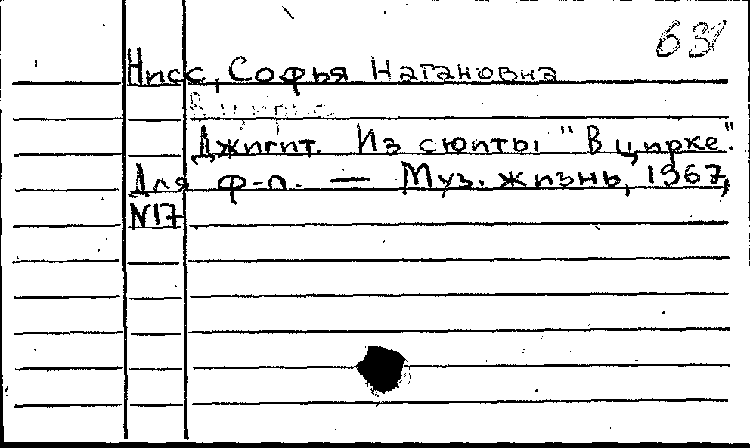 63
Нисс, Софья Натановна
В цирке.
Джигит. Из сюиты "В цирке".
Для ф-п. — Муз. жизнь, 1967,
N17